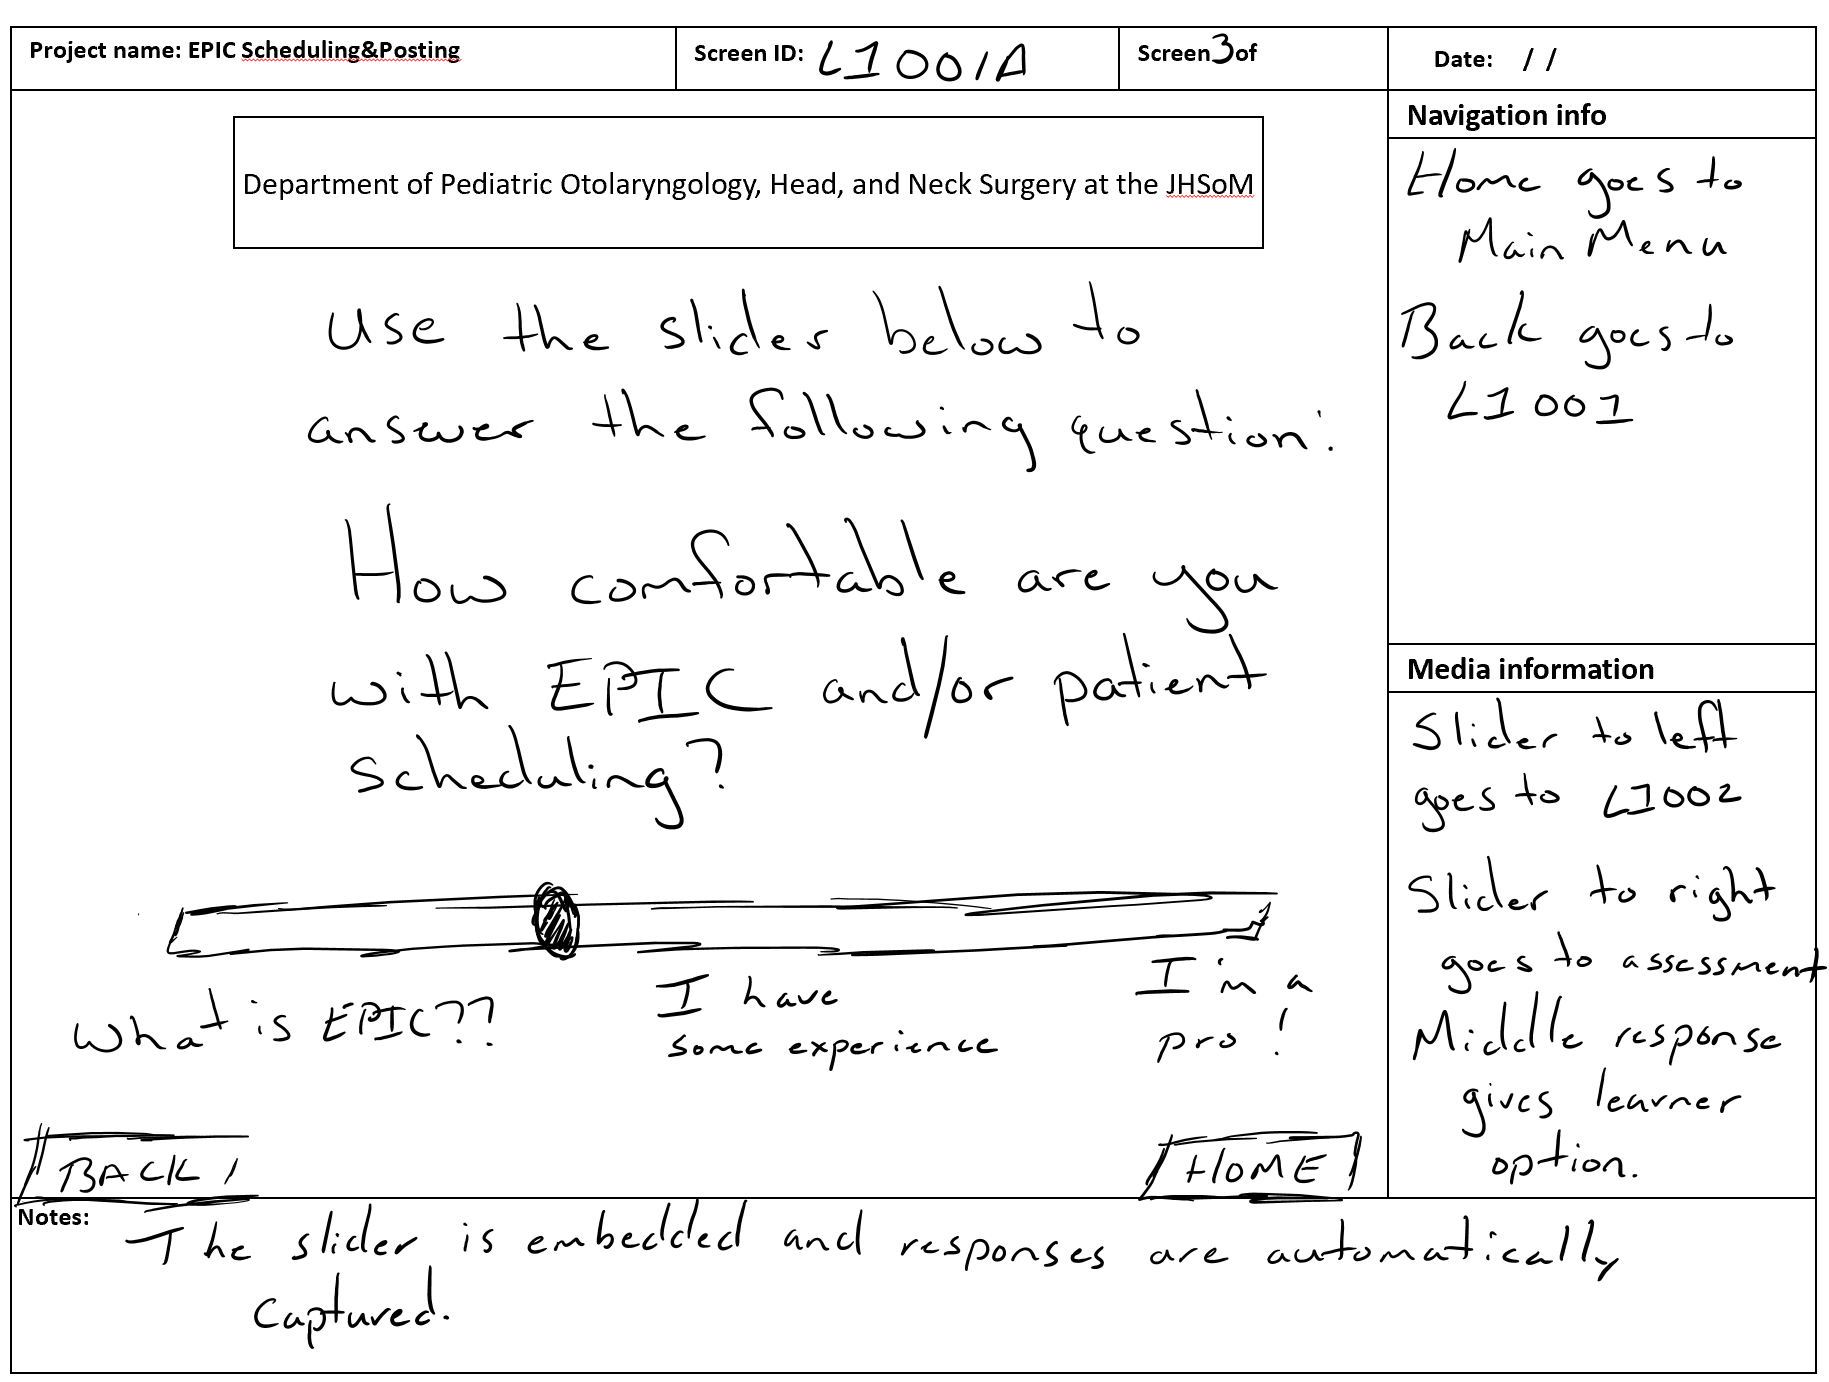 Project name: EPIC Scheduling&Posting
Screen ID: L1001A
Screen 3 of
Date: / /
Department of Pediatric Otolaryngology, Head, and Neck Surgery at the JHSoM
Use the slider below to
answer the following question:
How comfortable are you
with EPIC and/or patient
scheduling?
What is EPIC??
I have
some experience
I'm a
pro!
BACK
HOME
Navigation info
Home goes to
Main Menu
Back goes to
L1001
Media information
Slider to left
goes to L1002
Slider to right
goes to assessment
Middle response
gives learner
option.
Notes:
The slider is embedded and responses are automatically
captured.